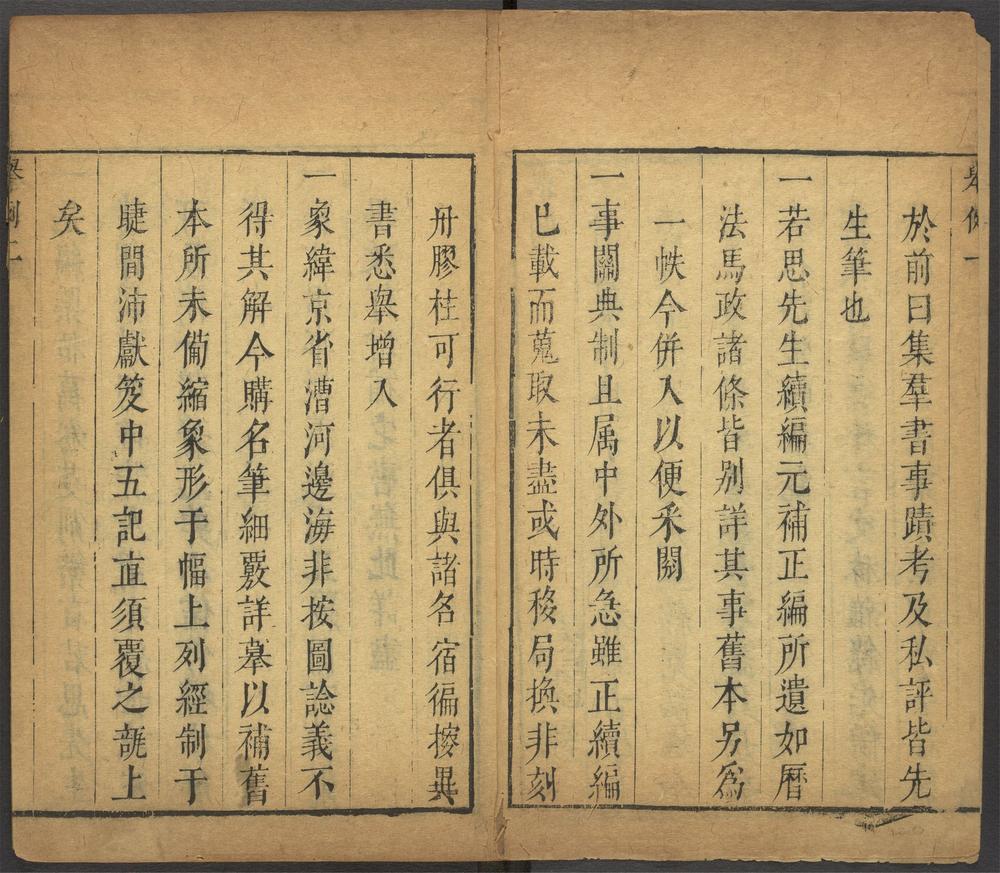 舉例一
於前曰集羣書事蹟考及私評皆先
生筆也
一若思先生續編元補正編所遺如曆
法馬政諸條皆别詳其事舊本另爲
一帙今併入以便釆閱
一事關典制且属中外所急雖正續編
已載而蒐取未盡或時移局換非刻
舟膠柱可行者俱與諸名宿徧擦異
書悉舉增入
一象緯京省漕河邊海非按圖諗義不
得其解今購名筆細覈詳摹以補舊
本所未備縮象形于幅上列經制于
睫間沛獻笈中五記直須覆之瓿上
矣
舉例二